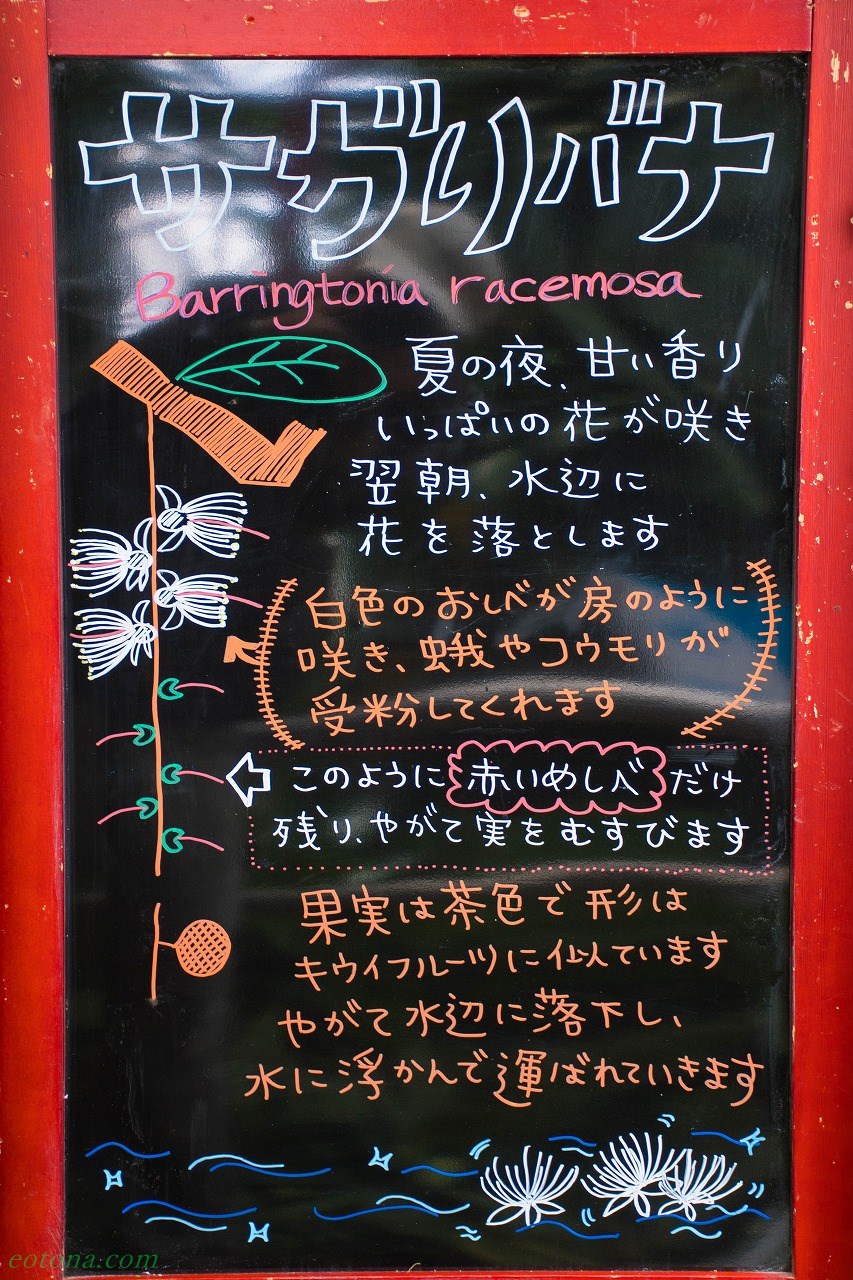 サガリバナ
Barringtonia racemosa
夏の夜、甘い香り
いっぱいの花が咲き
翌朝、水辺に
花を落とします
白色のおしべが房のように
咲き、蛾やコウモリが
受粉してくれます
このように赤いめしべだけ
残り、やがて実をむすびます
果実は茶色で形は
キウイフルーツに似ています
やがて水辺に落下し、
水に浮かんで運ばれていきます
eotona.com